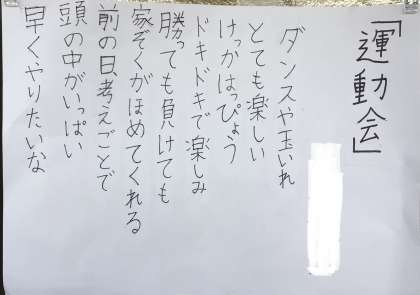 「運動会」
ダンスや玉いれ
とても楽しい
けっかはっぴょう
ドキドキで楽しみ
勝っても負けても
家ぞくがほめてくれる
前の日、考えごとで
頭の中がいっぱい
早くやりたいな